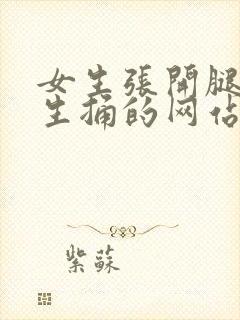 女生張開腿
生捅的网佔
紫蘇